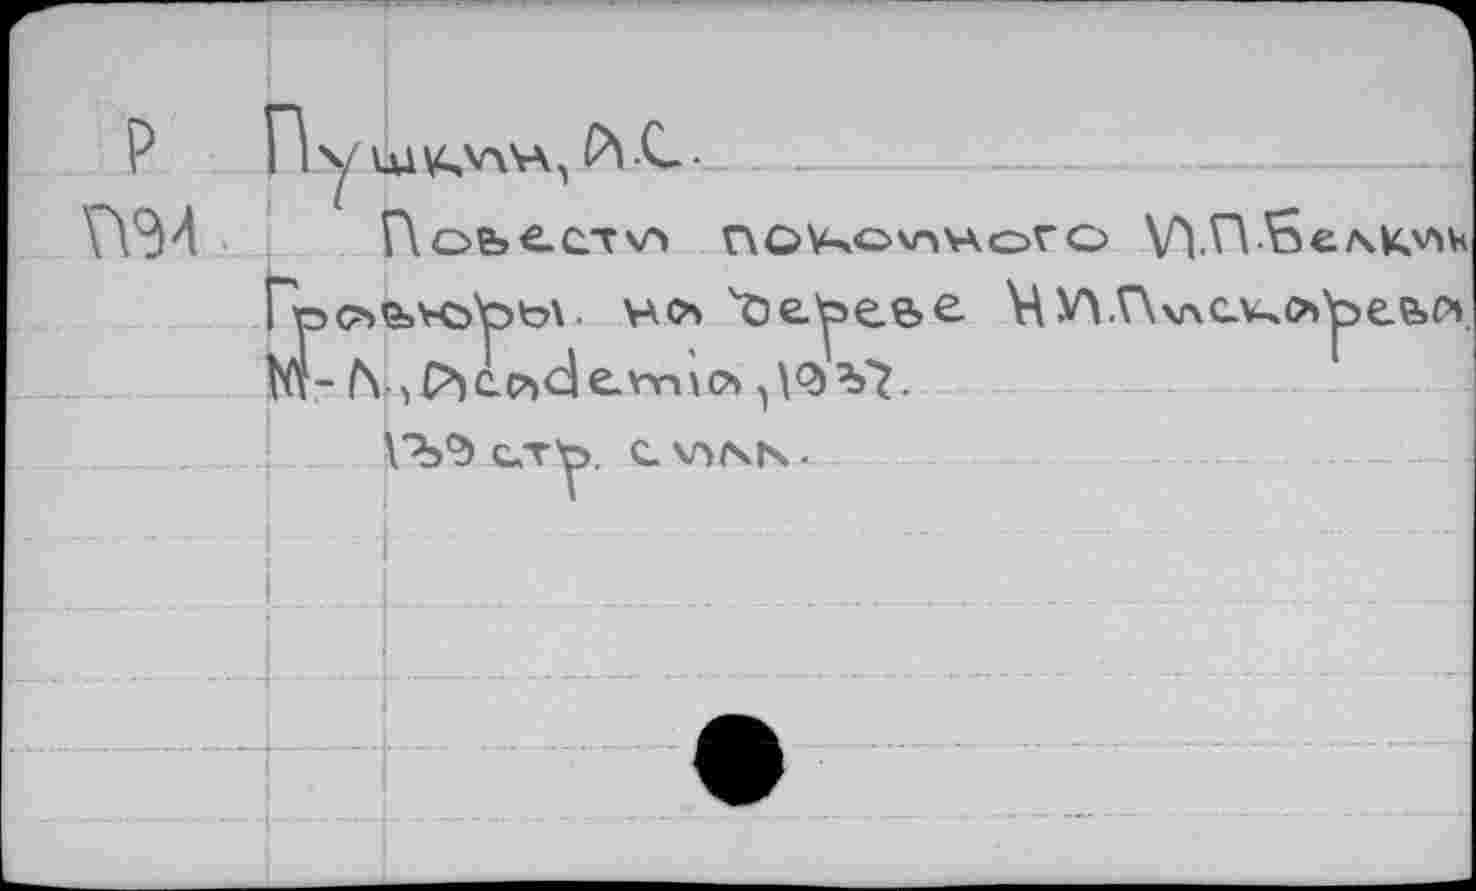 Р Пушкин, А.С.
П91 Повести покойного И.П.Белкин
Гравюры на дереве Н.И.Пискарева.
М-Л., Academia, 1937.
139 стр. с илл.